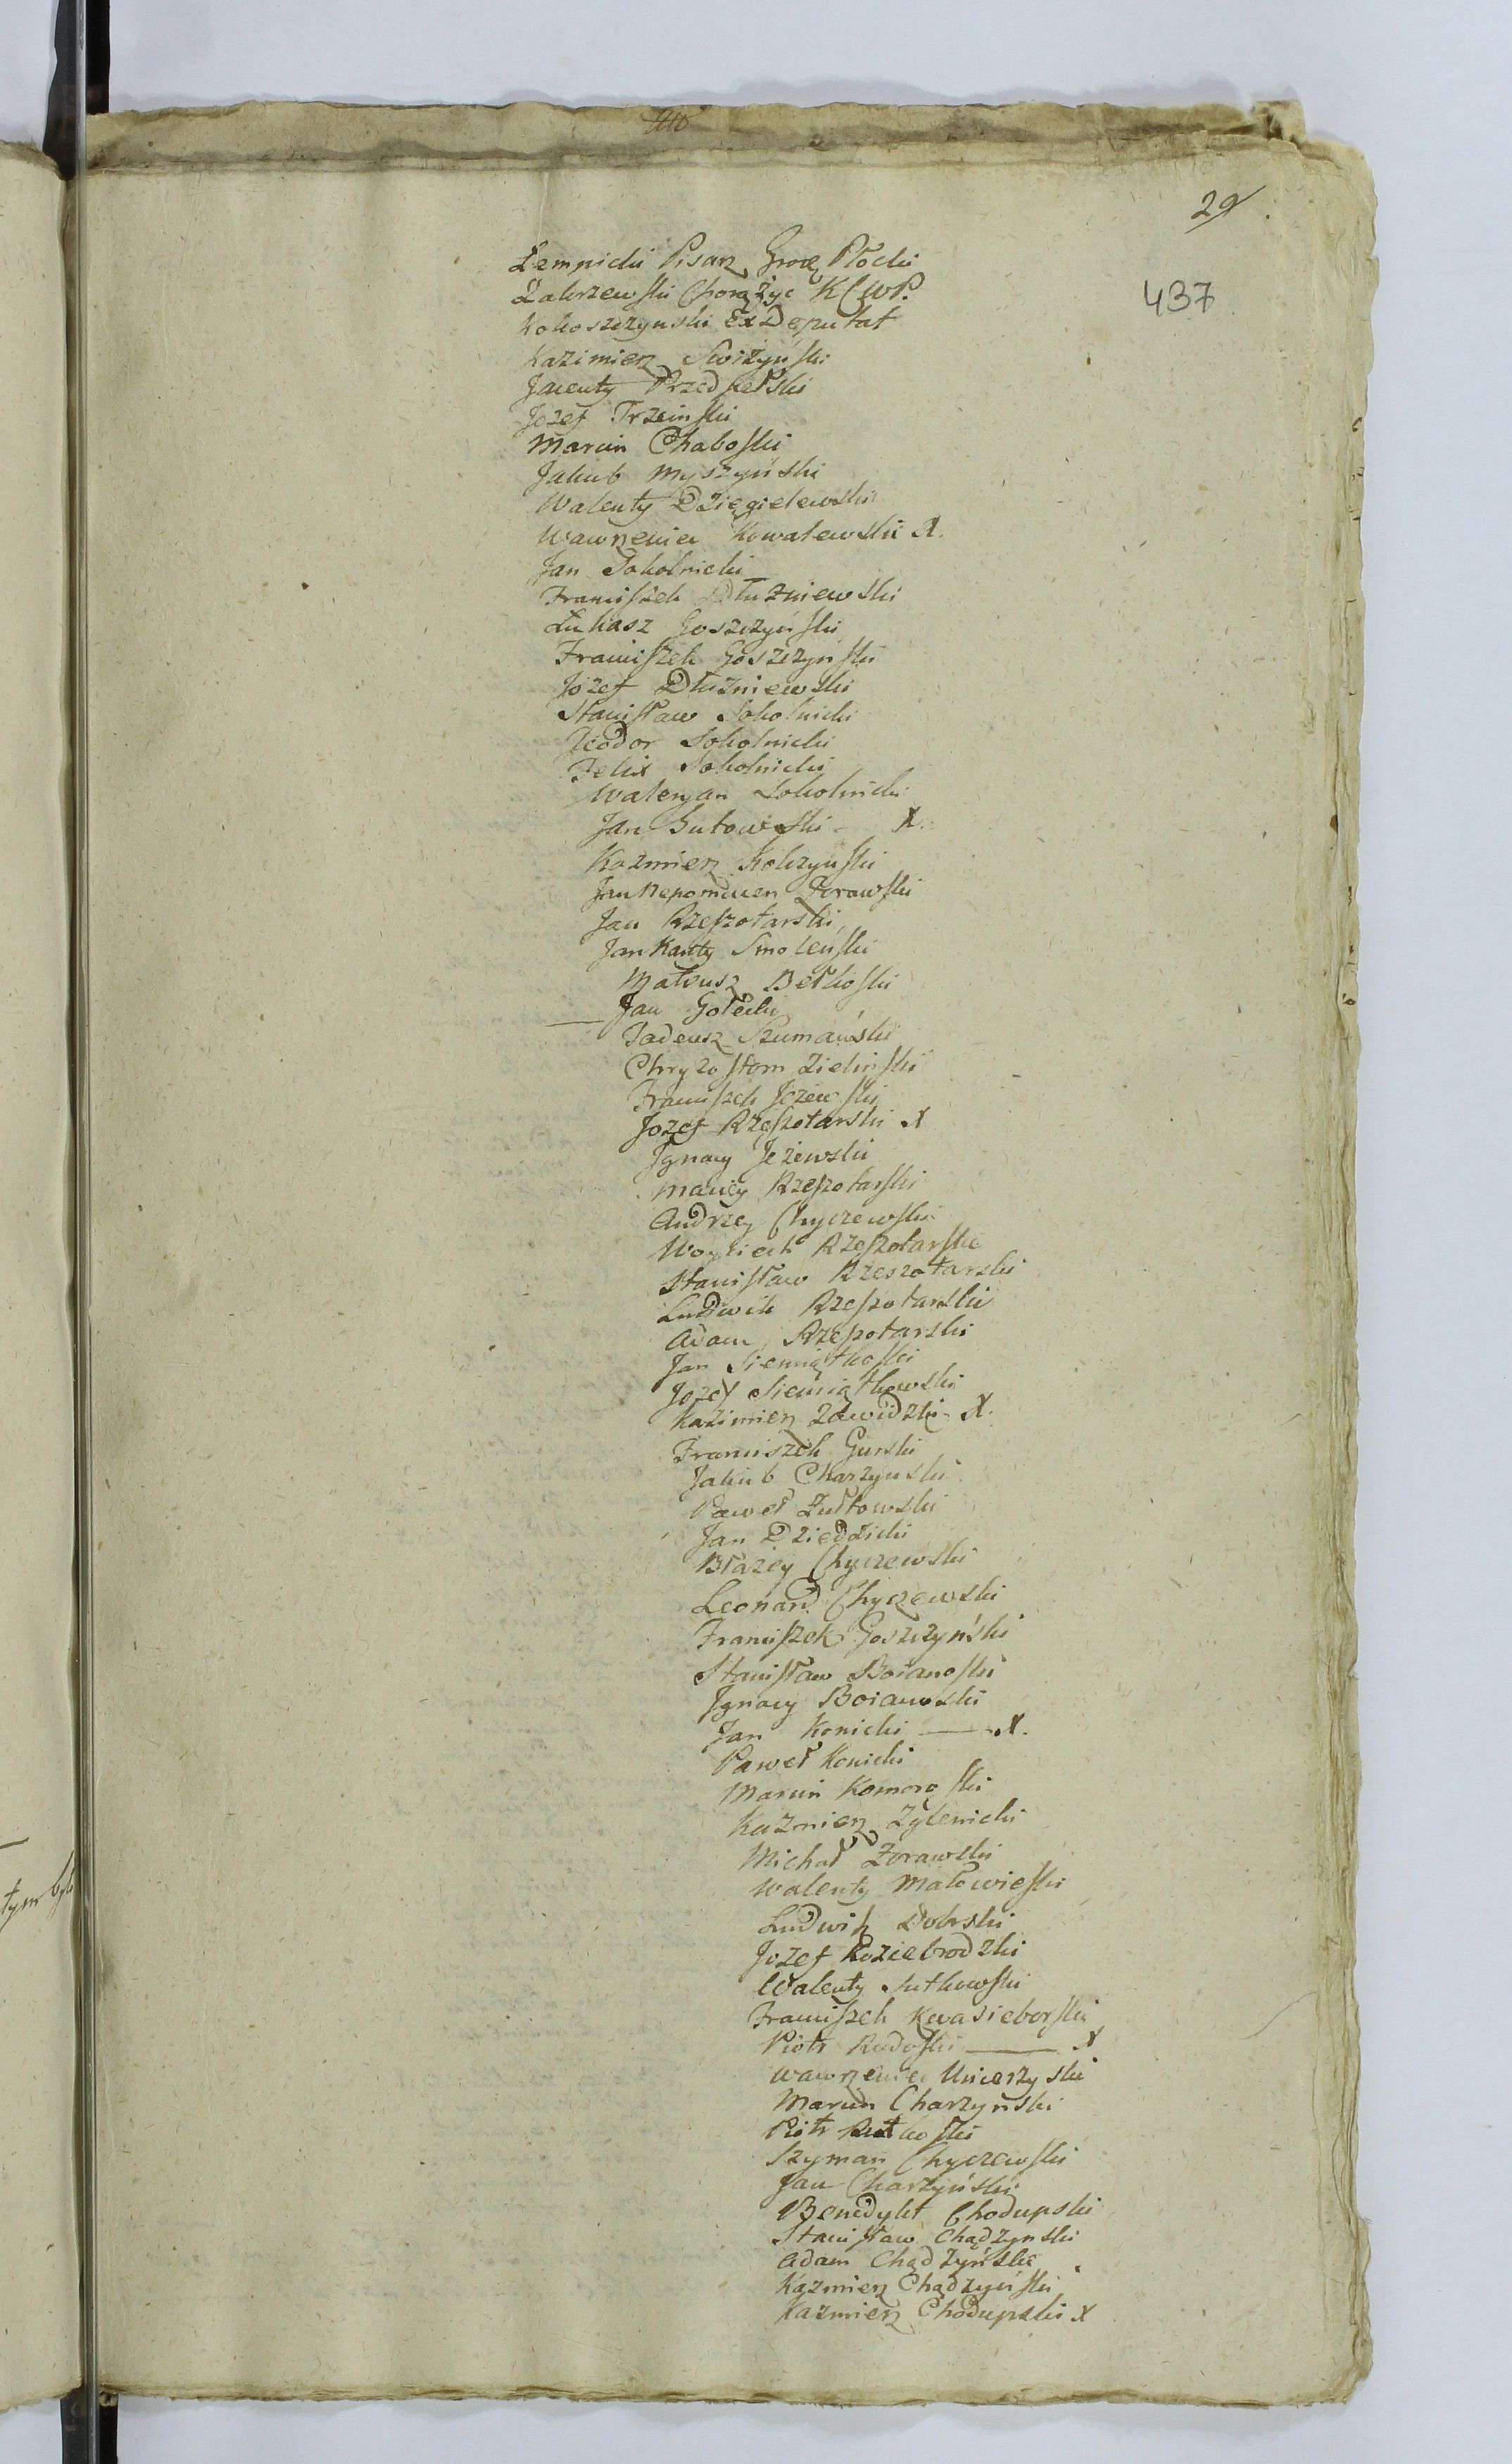 29
437
Łempicki Pisarz Grodz Płocki
Zakrzewski Chorążyc K C W P.
Kokoszczynski Ex Deputat
Kazimierz Swiżyński
Jacenty Przedpełski
Jozef Trzcinski
Marcin Chaboski
Jakub Myszyński
Walenty Dzięgielewski
Wawrzeniec Kowalewski X.
Jan Sokolnicki
Franciszek Dłużniewski
Łukasz Goszczyński
Franciszek Goszczyński
Józef Dłużniewski
Stanisław Sokolnicki
Teodor Sokolnicki
Felix Sokolnicki
Waleryan Sokolnicki
Jan Gutowski X.
Kazmierz Kolczyński
Jan Nepomucen Zorawski
Jan Rzeszotarski
Jan Kanty Smolenski
Mateusz Bełkoski
Jan Gołecki
Tadeusz Szumański
Chryzostom Zieliński
Franciszek Jeżewski
Jozef Rzeszotarski X
Ignacy Jeżewski
Maciey Rzeszotarski
Andrzey Chyczewski
Woyciech Rzeszotarski
Stanisław Rzeszotarski
Ludwik Rzeszotarski
Adam Rzeszotarski
Jan Siemiątkoski
Jozef Siemiątkowski
Kazimierz Zawidzki X.
Franciszek Gurski
Jakub Charzynski
Paweł Żułtowski
Jan Dziedzicki
Błażey Chyczewski
Leonard Chyczewski
Franciszek Goszczyński
Stanisław Boianoski
Ignacy Boianoski
Jan Konicki X.
Paweł Konicki
Marcin Komoroski
Kazmierz Żylenicki
Michał Żorawski
Walenty Małowieski
Ludwik Dobrski
Jozef Koziebrodzki
Walenty Sutkowski
Franciszek Kwasieborski
Piotr Rudoski X
Wawrzeniec Unierzyski
Marcin Charzyński
Piotr Rutkoski
Szyman Chyczewski
Jan Charzyński
Benedykt Chodupski
Stanisław Chądzynski
Adam Chądzyński
Kazmierz Chądzyński
Kazmierz Chodupski X
tym był